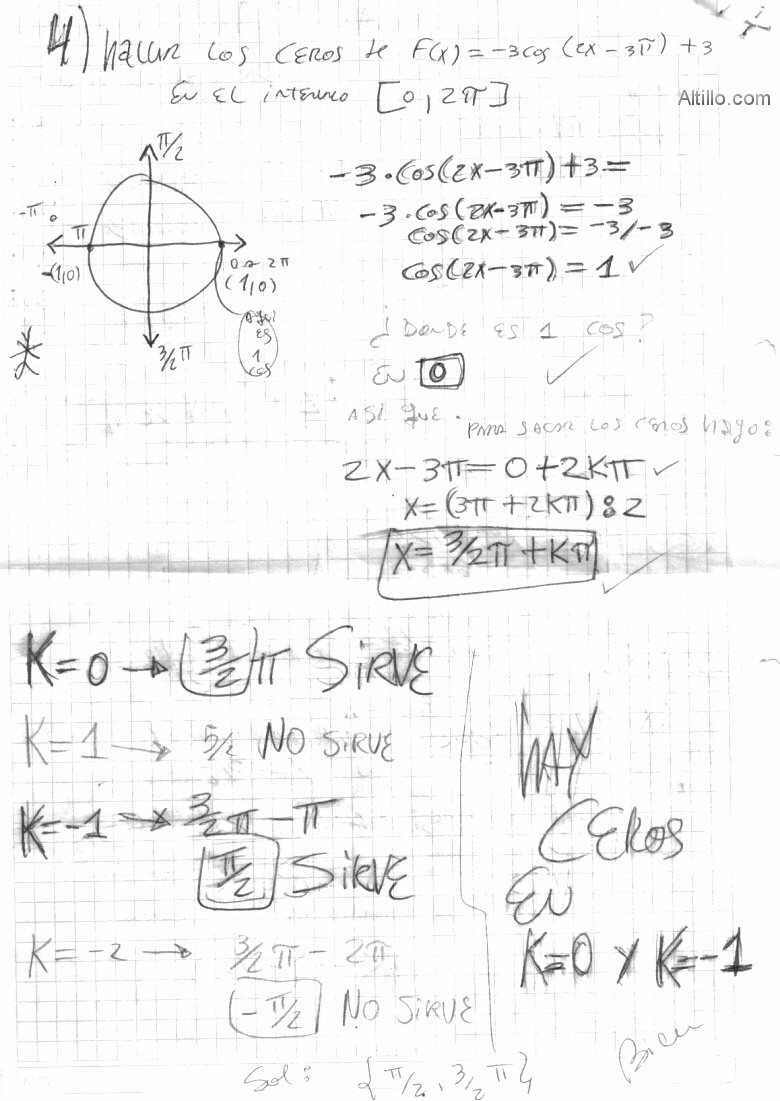 4) hallar los ceros de F(x) = -3cos (2x - 3π) + 3
En el intervalo [0, 2π]
Altillo.com
π/2
-π
π
-(1,0)
0 o 2π
(1,0)
aquí
es
1
cos
3/2 π
-3.cos(2x-3π)+3=
-3.cos(2x-3π) = -3
cos(2x-3π) = -3/-3
cos(2x-3π) = 1 ✓
¿Donde es 1 cos?
En 0 ✓
Así que. para sacar los ceros hago:
2x-3π = 0+2kπ ✓
x = (3π+2kπ):2
x = 3/2π+kπ ✓
K=0 → 3/2 π SiRVE
K=1 → 5/2 NO SiRVE
K=-1 → 3/2π - π
π/2 SiRVE
K=-2 → 3/2π - 2π
-π/2 NO SiRVE
HAY
CEROS
EN
K=0 Y K=-1
Bien
Sol: {π/2, 3/2 π}